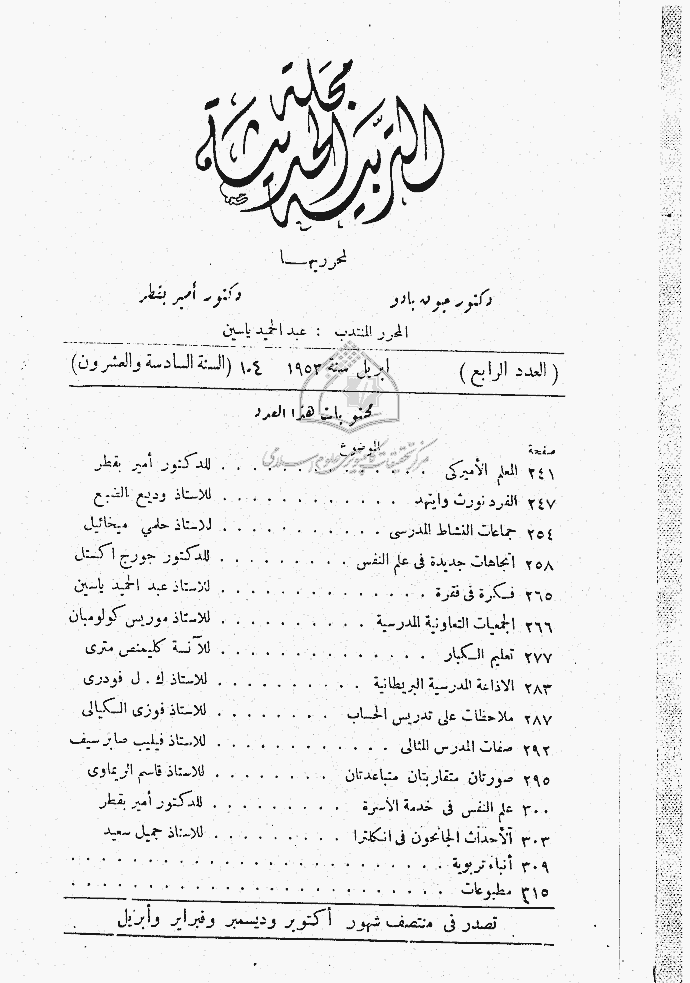 مجلة
التربية الحديثة
لمحرريها
دكتور أمير بقطر
المحرر المنتدب : عبد الحميد ياسين
( العدد الرابع ) ابريل سنة ١٩٥٣ ١٠٤ (السنة السادسة والعشرون)
محتويات هذا العدد
صفحة الموضوع
مركز تحقيقات كامپيوترى علوم اسلامى
٢٤١ المعلم الأميركى . . . . . . . . . . . للدكتور أمير بقطر
٢٤٧ الفرد نورث وايتهد . . . . . . . . . . . . للاستاذ وديع الضبع
٢٥٤ جماعات النشاط المدرسى . . . . . . . . . . . للاستاذ حلمي ميخائيل
٢٥٨ اتجاهات جديدة فى علم النفس . . . . . . . . . للدكتور جورج اكستل
٢٦٥ فكرة فى فقرة . . . . . . . . . . . . . للاستاذ عبد الحميد ياسين
٢٦٦ الجمعيات التعاونية المدرسية . . . . . . . . . . للاستاذ موريس كولومبان
٢٧٧ تعليم الكبار . . . . . . . . . . . . . للآنسة كليمنص مترى
٢٨٣ الاذاعة المدرسية البريطانية . . . . . . . . . . للاستاذ ك . ل فودرى
٢٨٧ ملاحظات على تدريس الحساب . . . . . . . . للاستاذ فوزى الكيالى
٢٩٢ صفات المدرس المثالى . . . . . . . . . . . . للاستاذ فيليب صابر سيف
٢٩٥ صورتان متقاربتان متباعدتان . . . . . . . . للاستاذ قاسم الريماوى
٣٠٠ علم النفس فى خدمة الأسرة . . . . . . . . . للدكتور أمير بقطر
٣٠٣ الأحداث الجانحون فى انكلترا . . . . . . . . . للاستاذ جميل سعيد
٣٠٩ أنباء تربوية . . . . . . . . . . . . . . . . . . . .
٣١٥ مطبوعات . . . . . . . . . . . . . . . . . . . .
تصدر فى منتصف شهور أكتوبر وديسمبر وفبراير وأبريل